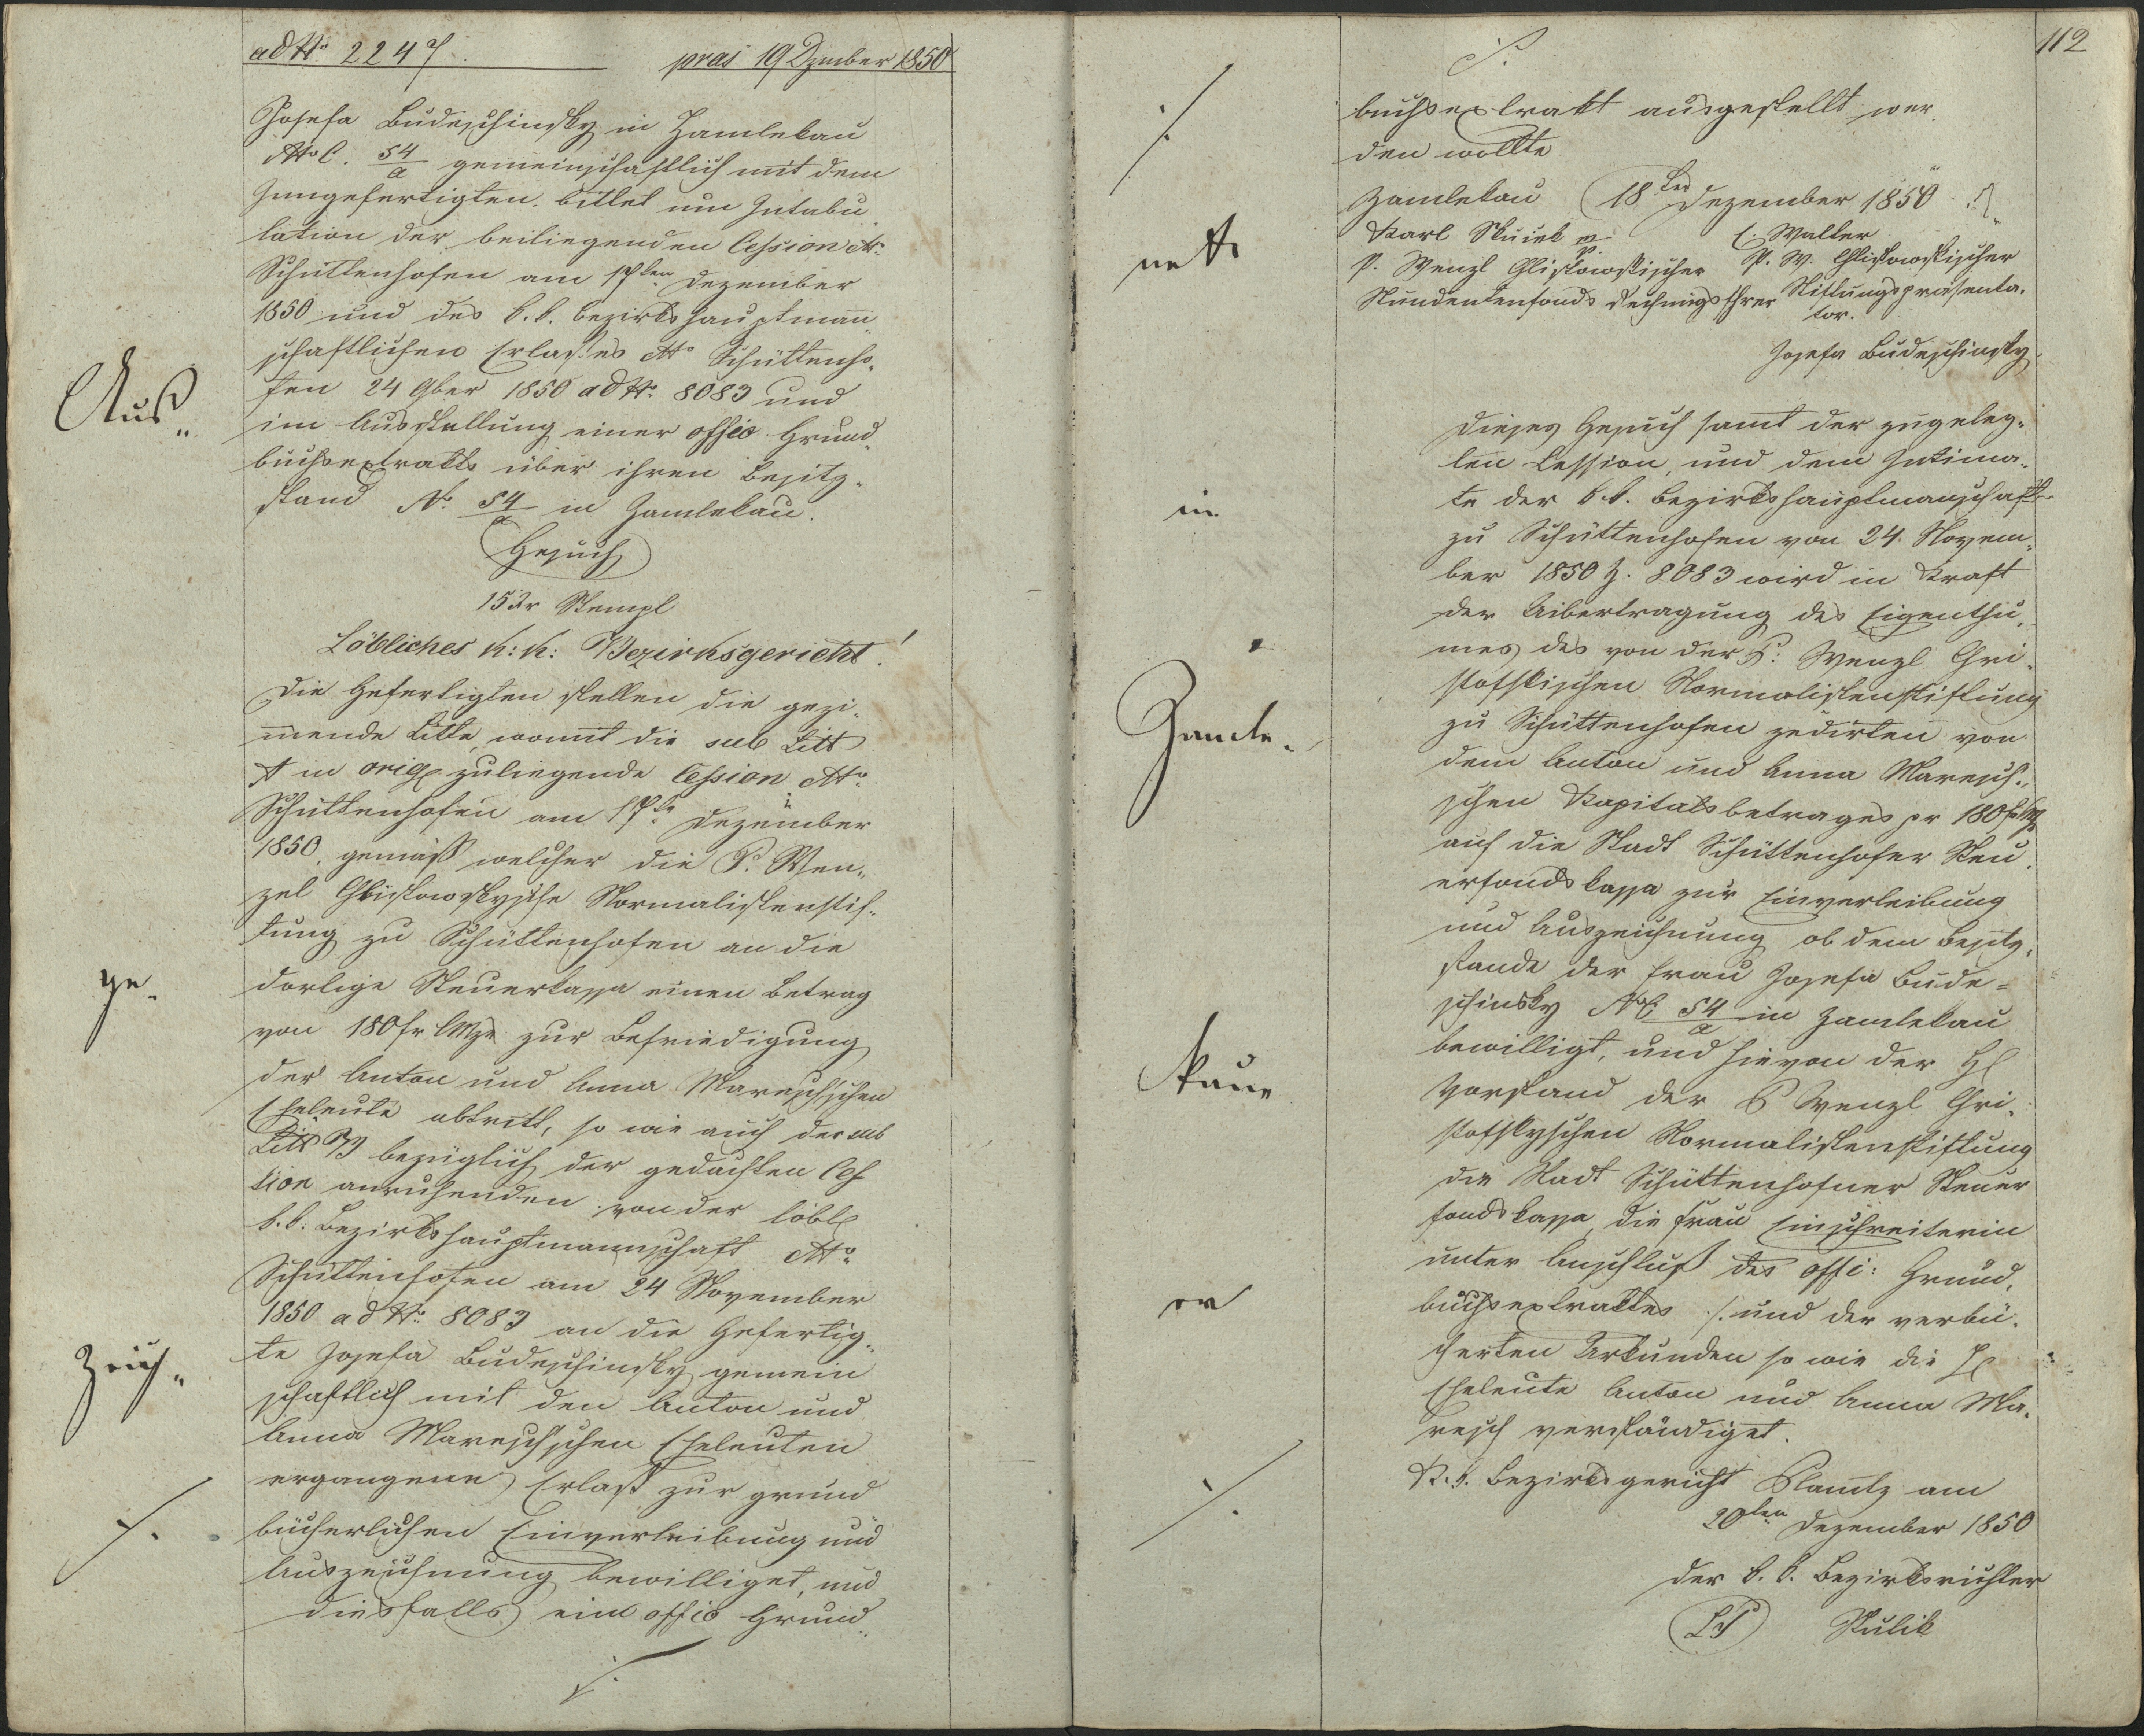 ad Nro 2247. pras 19 Dzember 1850
Josefa Budeschinsky in Zamlekau
NroC. 54/a gemeinschaftlich mit dem
Inngefertigten bittet um Intabu„
lation der beiliegenden Cession dto
Schüttenhofen am 17ten Dezember
1850 und des k. k. bezirkshauptmann„
schaftlichen Erlasses dto Schüttenho„
fen 24 9ber 1850 ad Nro 8083 und
im Ausstellung einer offio Grund„
buchsextrakts über ihren Besitz„
stand No 54/a in Zamlekau.
Gesuch
15 xr Stempl
Löbliches k: k: Bezirksgericht!
Die Gefertigten stellen die gezi„
mende Bitte, womit die sub Litt
A in orig zuliegende Cession dto
Schüttenhofen am 17ten Dezember
1850, gemäß welcher die P. Wen„
zel Christowskysche Normalistenstif„
tung zu Schüttenhofen an die
dortige Steuerkassa einen Betrag
von 180 fr CMze zur Befriedigung
der Anton und Anna Mareschschen
Eheleute abtritt, so wie auch der sub
Litt B bezüglich der gedachten Ces
sion anruhenden von der löbl
k. k: Bezirkshauptmannschaft dto
Schüttenhofen am 24 November
1850 ad Nro 8083 an die Gefertig„
te Josefa Budeschinsky gemein
schaftlich mit den Anton und
Anna Mareschschen Eheleuten
ergangene Erlaß zur grund
bücherlichen Einverleibung und
Auszeichnung bewilliget, und
diesfalls ein offio Grund„
./.
Aus„
ge„
zeich„
./.
112
./.
buchsextrakt ausgestellt wer„
den wollte
Zamlekau 18ten Dezember 1850
Karl Skuiek mp. C. Walter
P. Wenzl Christowskischer P. W. Christowskischer
Studentenfonds Rechnungsfhrer Stiftungspräsenta„
tor.
Josefa Budeschinsky
Dieses Gesuch samt der zugeleg„
ten Cession, und dem Intima„
te der k. k. Bezirkshauptmanschaft
zu Schüttenhofen von 24. Novem„
ber 1850 Z. 8083 wird in Kraft
der Uibertragung des Eigenthu„
mes des von der P: Wenzl Chri„
stofskischen Normalistenstiftung
zu Schüttenhofen zedirten von
dem Anton und Anna Maresch„
schen Kapitalsbetrages pr 180 f CMz
auf die Stadt Schüttenhofer Steu„
erfondskassa zur Einverleibung
und Auszeichnung ob dem Besitz„
stande der Frau Josefa Bude=
schinsky NroC 54/a in Zamlekau
bewilligt, und hievon der H
Vorstand der P Wenzl Chri„
stofskyschen Normalistenstiftung
die Stadt Schüttenhofner Steuer
fondskassa, die Frau Einschreiterin
unter Anschluß des offi: Grund„
buchsextraktes ./. und der verbü„
cherten Urkunden so wie die H
Eheleute Anton und Anna Ma„
resch verständiget.
K. k. Bezirksgericht Planitz am
20ten Dezember 1850
der k. k. Bezirksrichter
LS Skulik
./.
nets
in
Zamle„
kau„
er
./.